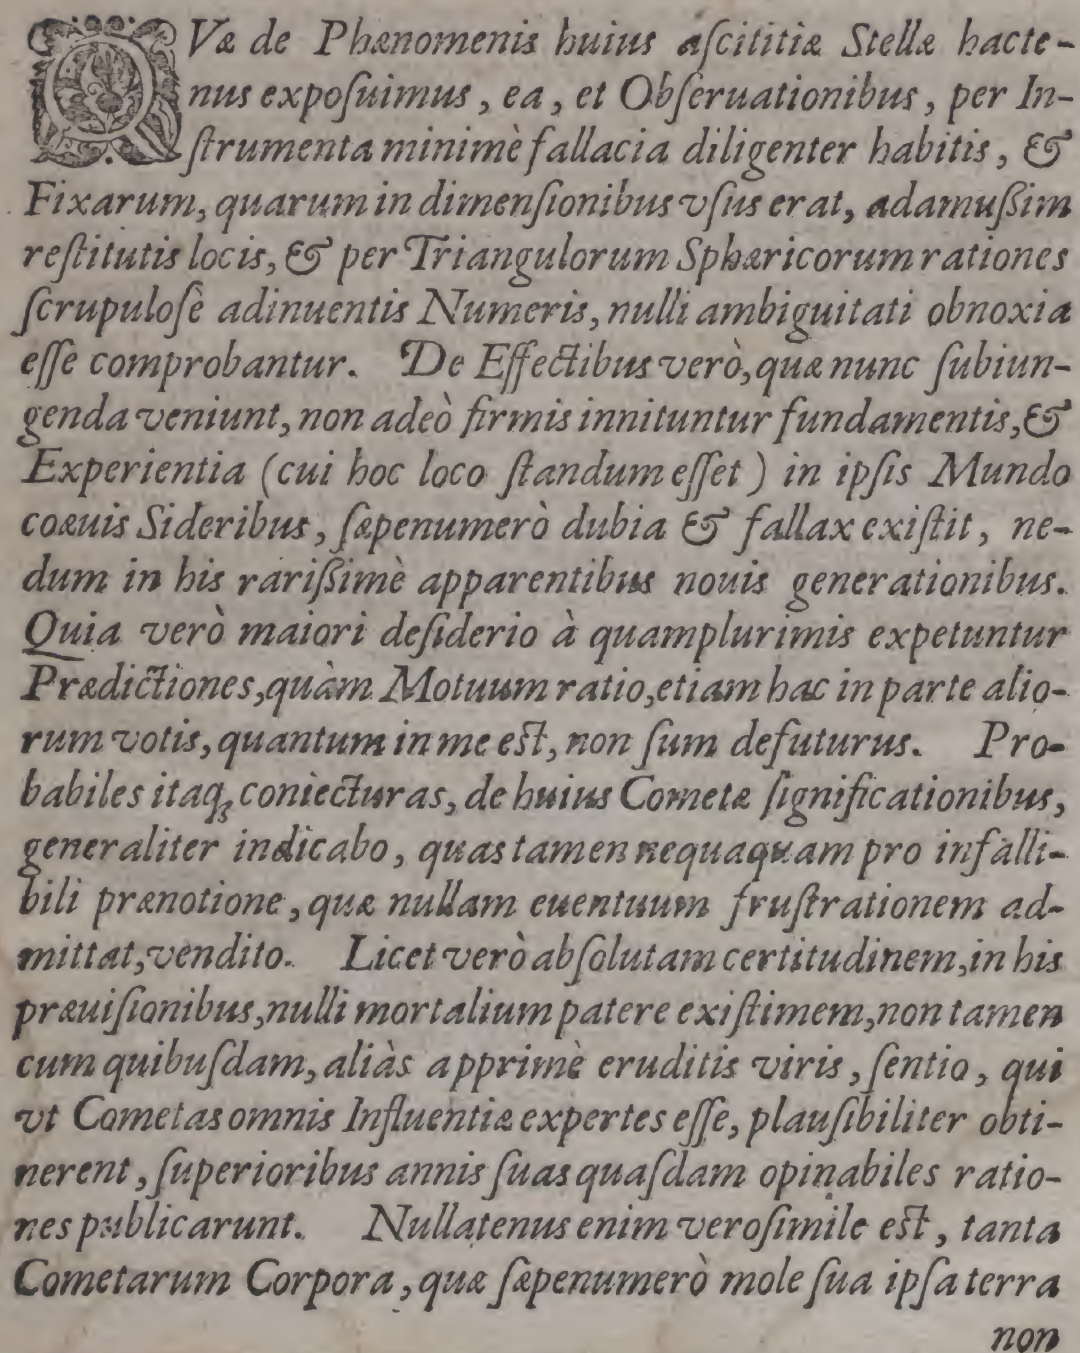 QVæ de Phænomenis huius aſcititiæ Stellæ hacte-
nus expoſuimus, ea, et Obſeruationibus, per In-
ſtrumenta minimè fallacia diligenter habitis, &
Fixarum, quarum in dimenſionibus vſus erat, adamuſſim
reſtitutis locis, & per Triangulorum Sphæricorum rationes
ſcrupuloſè adinuentis Numeris, nulli ambiguitati obnoxia
eſſe comprobantur. De Effectibus verò, quæ nunc ſubiun-
genda veniunt, non adeò firmis innituntur fundamentis, &
Experientia (cui hoc loco ſtandum eſſet) in ipſis Mundo
coæuis Sideribus, ſæpenumerò dubia & fallax exiſtit, ne-
dum in his rariſſimè apparentibus nouis generationibus.
Quia verò maiori deſiderio à quamplurimis expetuntur
Prædictiones, quàm Motuum ratio, etiam hac in parte alio-
rum votis, quantum in me eſt, non ſum defuturus. Pro-
babiles itaq; coniecturas, de huius Cometæ ſignificationibus,
generaliter indicabo, quas tamen nequaquam pro infalli-
bili prænotione, quæ nullam euentuum fruſtrationem ad-
mittat, vendito. Licet verò abſolutam certitudinem, in his
præuiſionibus, nulli mortalium patere exiſtimem, non tamen
cum quibuſdam, aliàs apprimè eruditis viris, ſentio, qui
vt Cometas omnis Influentiæ expertes eſſe, plauſibiliter obti-
nerent, ſuperioribus annis ſuas quaſdam opinabiles ratio-
nes publicarunt. Nullatenus enim veroſimile eſt, tanta
Cometarum Corpora, quæ ſæpenumerò mole ſua ipſa terra
non